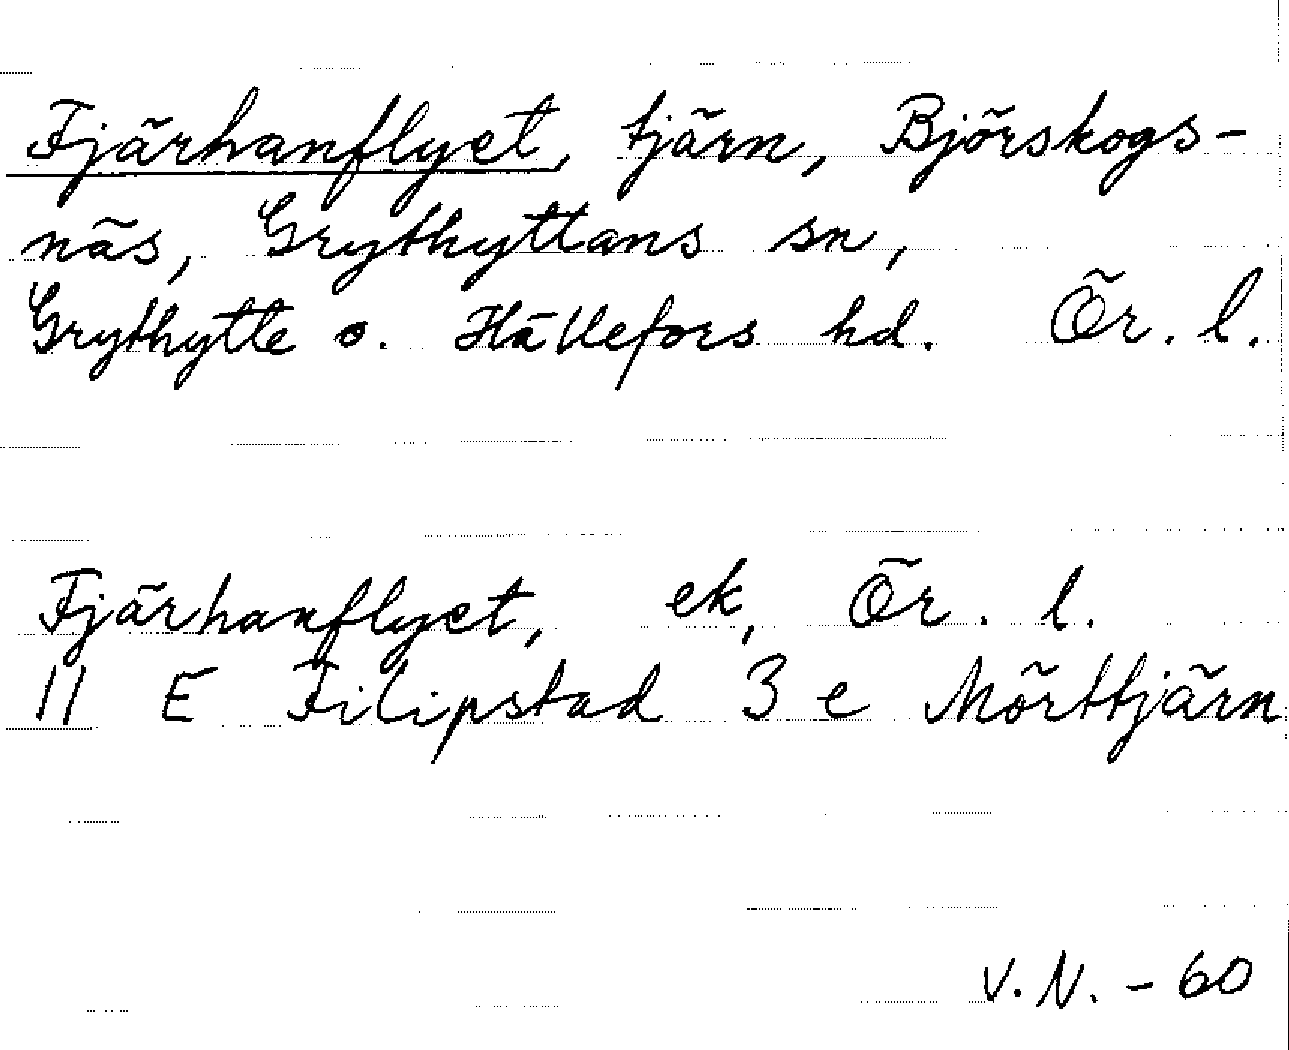 Fjärhanflyet, tjärn, Björskogs-
näs, Grythyttans sn,
Grythytte o. Hällefors hd. Ör. l.
Fjärhanflyet, ek, Ör. l.
11 E Filipstad 3 e Mörttjärn
V. N. - 60